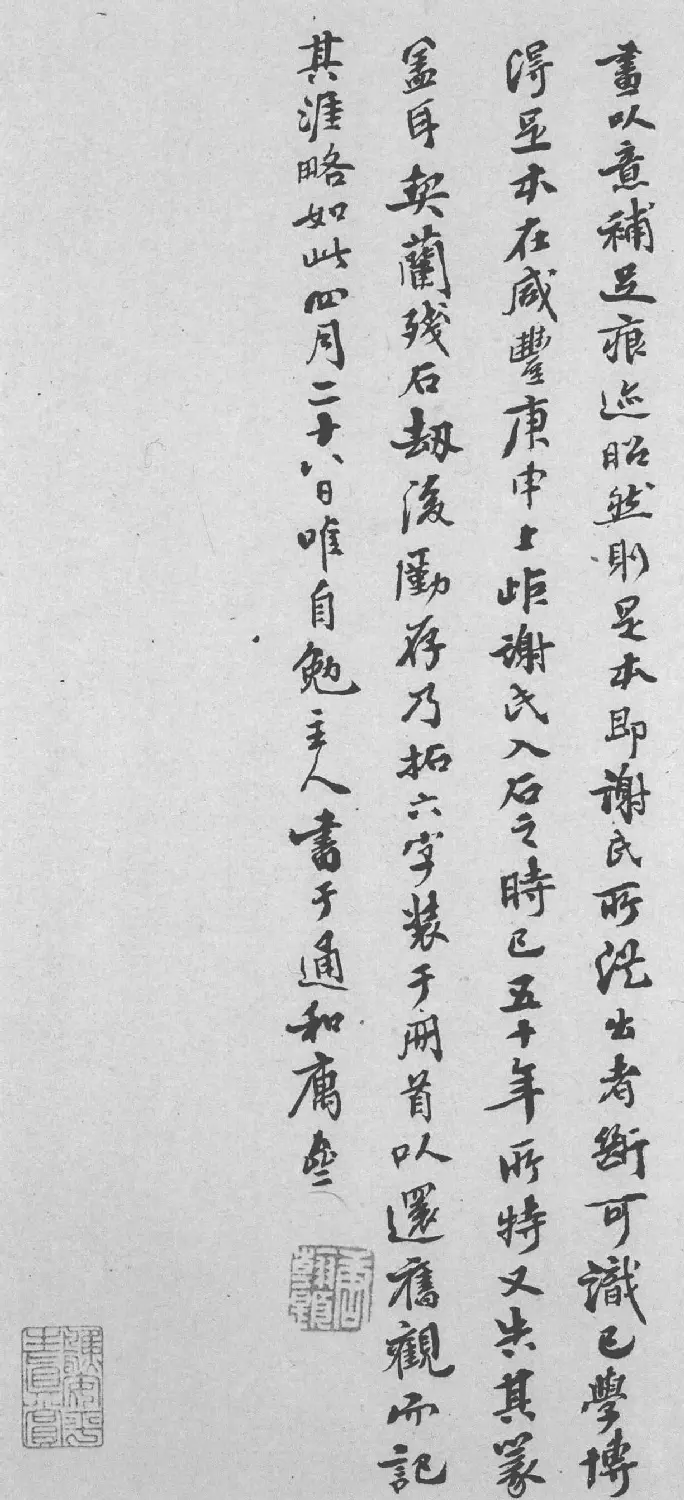 畫以意補足痕迹昭然則是本即謝氏所洗出者斷可識已學博
得是本在咸豐庚申上距謝氏入石之時已五十年所特又失其篆
盖耳契蘭殘石劫後勵存乃拓六字裝于册首以還舊觀而記
其涯略如此四月二十八日唯自勉主人書于通和